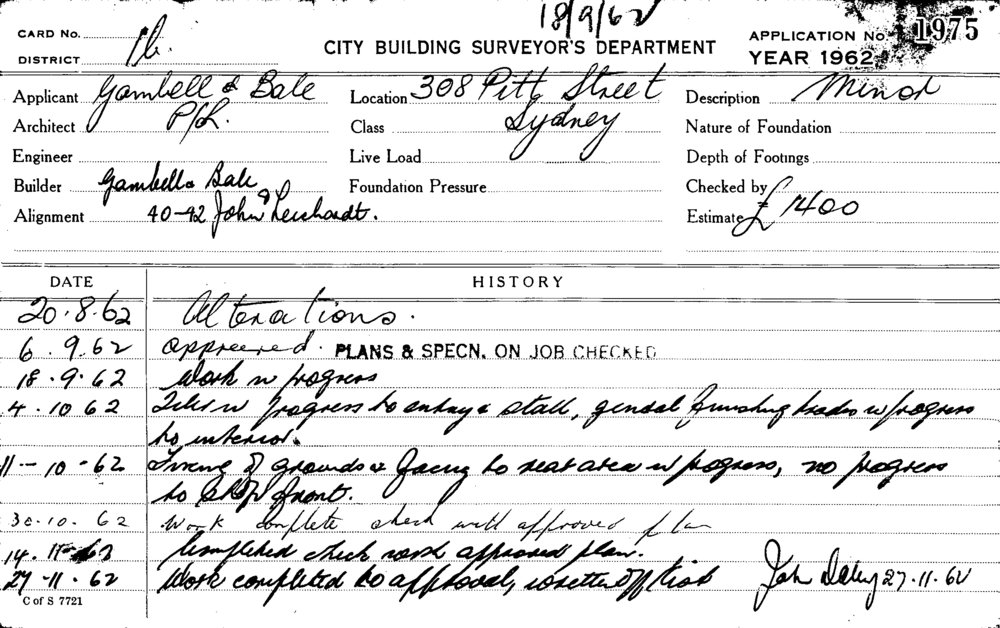 18/9/62
CARD No.
DISTRICT
CITY BUILDING SURVEYOR'S DEPARTMENT
APPLICATION No. 1975
YEAR 1962
Applicant Gambell & Bale Location 308 Pitt Street Description Minor
Architect P/L. Class Sydney Nature of Foundation
Engineer Live Load Depth of Footings
Builder Gambell & Bale Foundation Pressure Checked by
Alignment 40-42 John St Leichardt. Estimate £1400
DATE HISTORY
20.8.62 Alterations.
6.9.62 approved. PLANS & SPECN. ON JOB CHECKED
18.9.62 Work in progress
4.10 62 in progress to entry & stall, general finishing trades in progress
to interior.
11-10-62 Fixing of grounds & facing to rear area in progress, no progress
to shop front.
30.10.62 Work complete check with approved plan
14.11.62 Completed check work approved plan.
27-11.62 Work completed to approval, John 27.11.62
C of S 7721